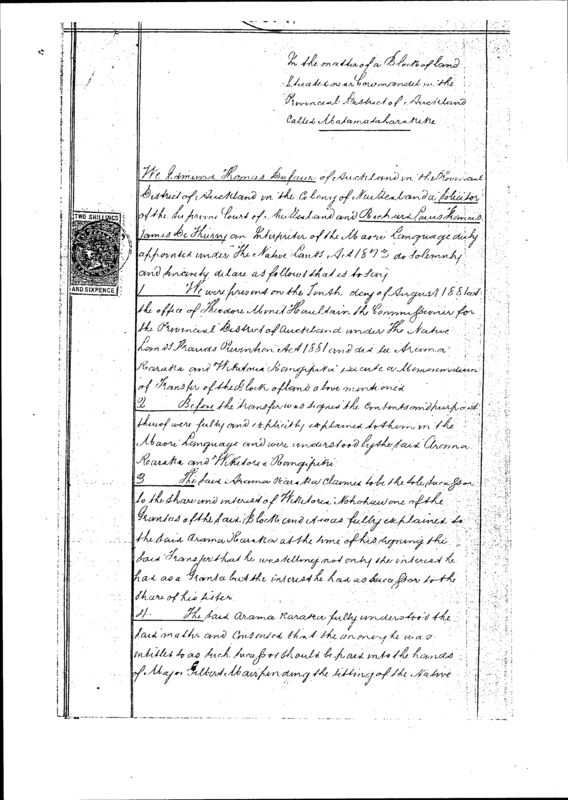 In the matter of a Block of land
situated near Coromandel in the
Provincial District of Auckland
called Matamataharakeke
We Edmund Thomas Dufaur of Auckland in the Provincial
District of Auckland in the Colony of New Zealand a Solicitor
of the Supreme Court of New Zealand and Richard Louis Francis
James De Thierry an Interpreter of the Maori Language duly
TWO SHILLINGS
AND SIXPENCE
appointed under "The Native Lands Act 1873 do solemnly
and sincerely declare as follows that is to say
1 We were present on the Tenth day of August 1881 at
the office of Theodore Minet Haultain the Commissioner for
the Provincial District of Auckland under The Native
Lands Frauds Prevention Act 1881 and did see Arama
Karaka and Wikitoria Rangipiki execute a Memorandum
of Transfer of the Block of land above mentioned
2 Before the transfer was signed the contents and purport
thereof were fully and explicitly explained to them in the
Maori Language and were understood by the said Arama
Karaka and Wikitoria Rangipiki
3 The said Arama Karaka claimed to be the sole successor
to the share and interest of Wikitoria Nohohaw one of the
Grantees of the said Block and it was fully explained to
the said Arama Karaka at the time of his signing the
said Transfer that he was selling not only the interest he
had as a Grantee but the interest he had as successor to the
share of his sister
4 The said Arama Karaka fully understood the
said matter and consented that the money he was
entitled to as such successor should be paid into the hands
of Major Gilbert Mair pending the sitting of the Native